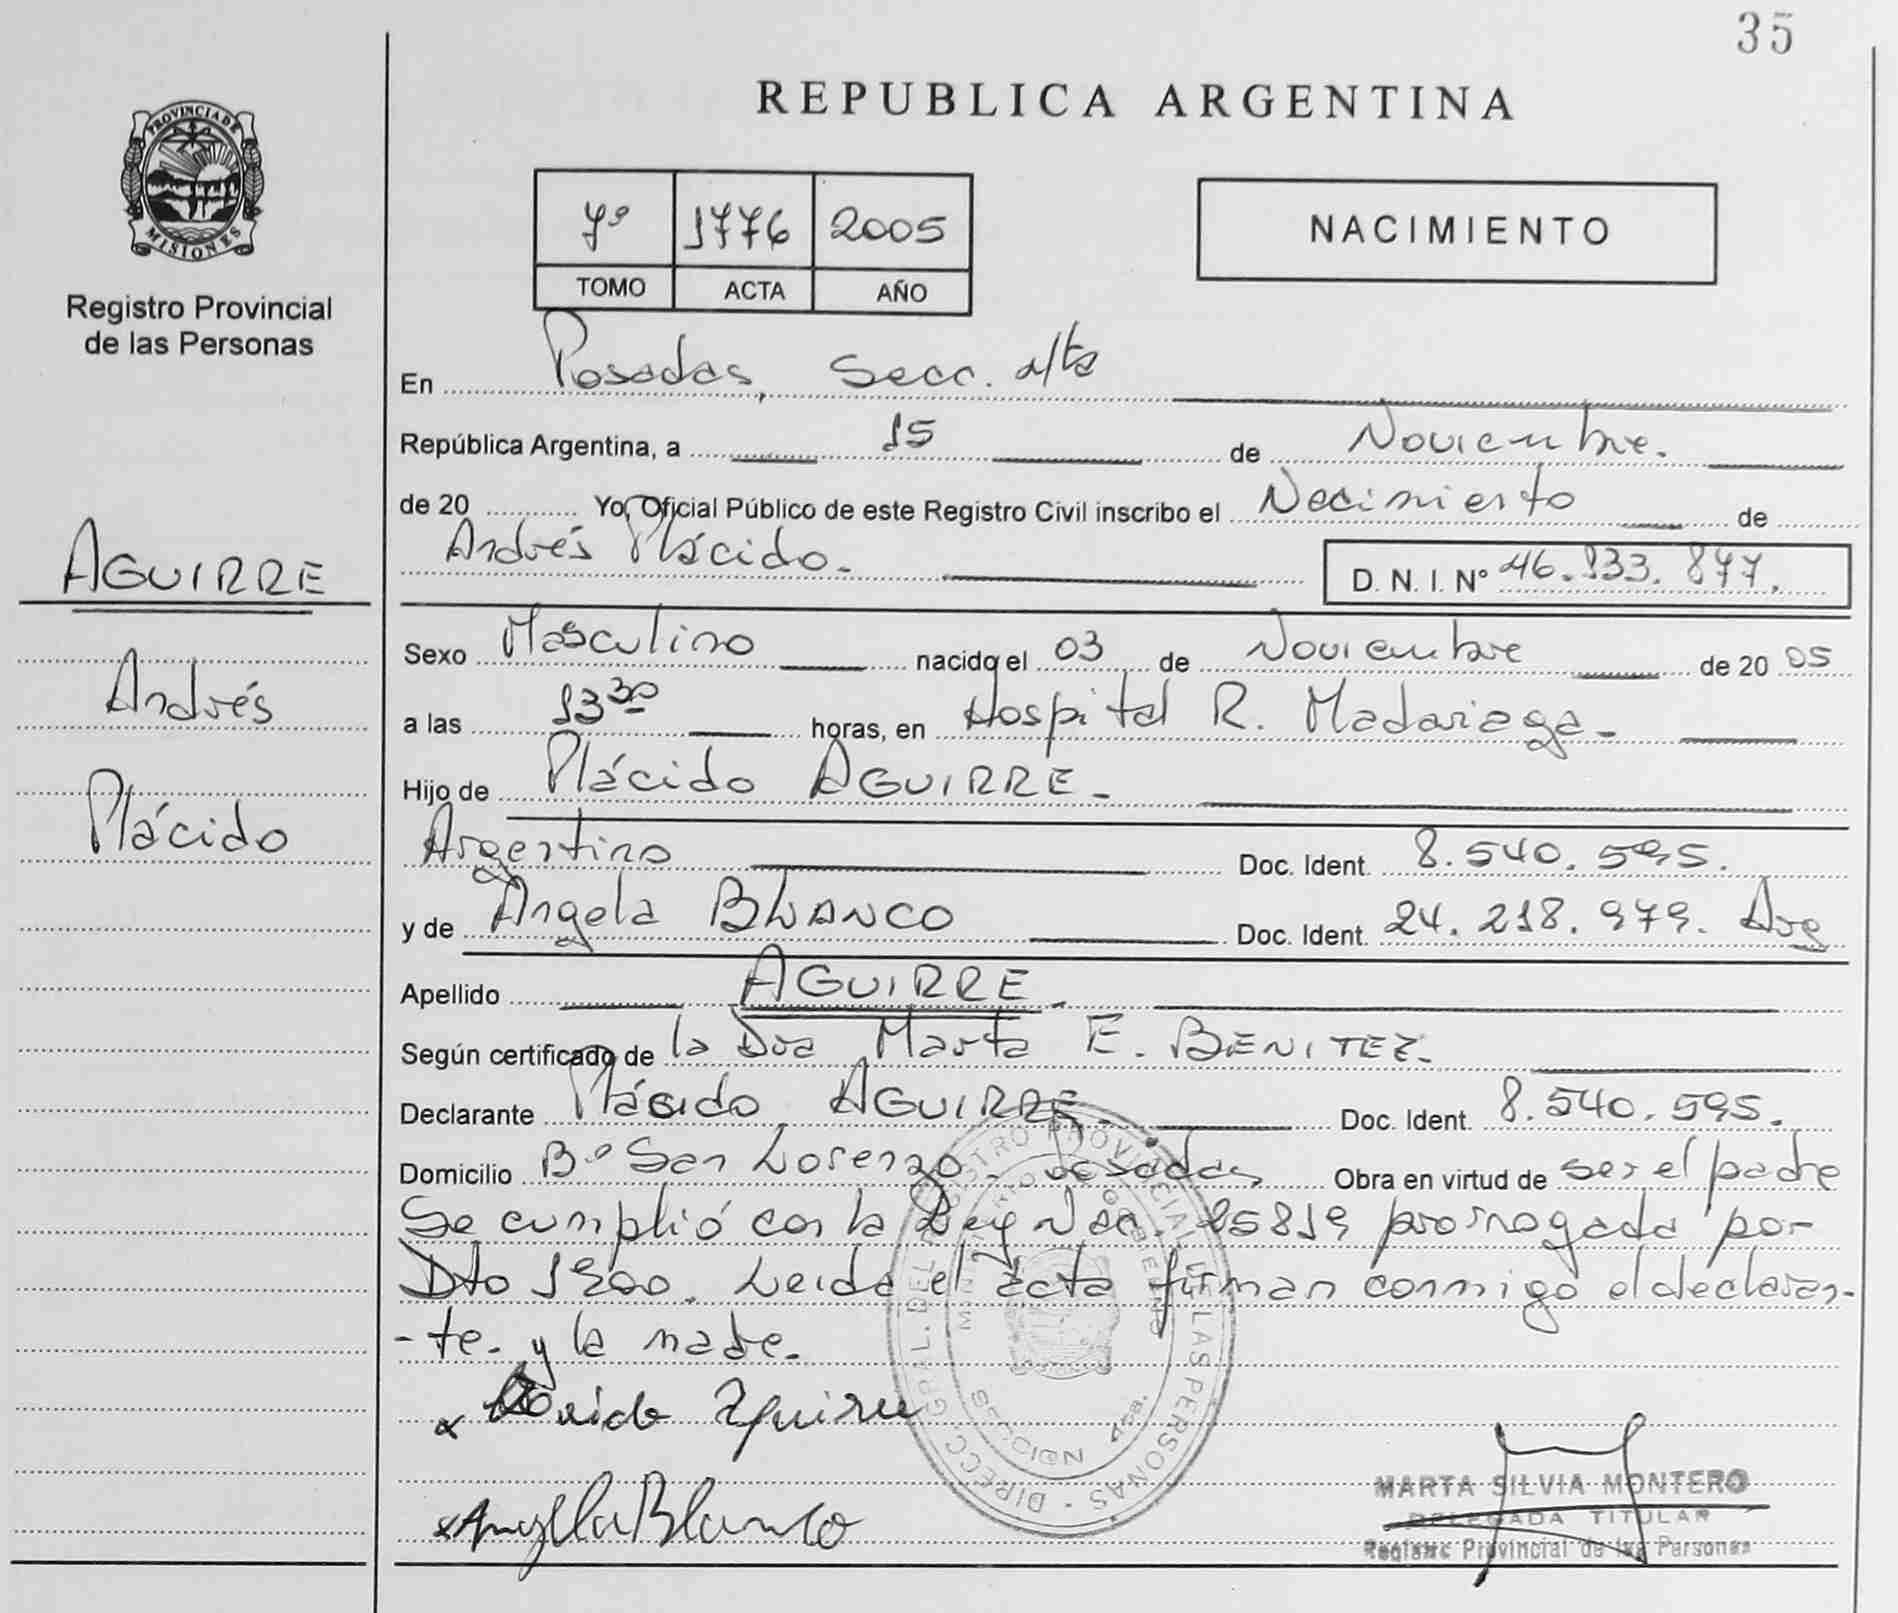 35
REPUBLICA ARGENTINA
PROVINCIA DE
MISIONES
Registro Provincial
de las Personas
7º 1776 2005
TOMO ACTA AÑO
NACIMIENTO
En Posadas, Secc. 4ta
República Argentina, a 15 de Noviembre.
de 20 Yo, Oficial Público de este Registro Civil inscribo el Nacimiento de
Andrés Plácido. D. N. I. Nº 46.933.877.
AGUIRRE
Andrés
Plácido
Sexo Masculino nacido el 03 de Noviembre de 20 05
a las 13 30 horas, en Hospital R. Madariaga.
Hijo de Plácido AGUIRRE.
Argentino Doc. Ident. 8.540.595.
y de Angela BLANCO Doc. Ident. 24.218.979. Arg
Apellido AGUIRRE.
Según certificado de la Dra Marta E. BENITEZ.
Declarante Plácido AGUIRRE. Doc. Ident. 8.540.595.
Domicilio Bº San Lorenzo. Posadas Obra en virtud de ser el padre
Se cumplió con la Ley Nac. 25819 prorrogada por
Dto 1900. Leida el acta firman conmigo el declaran-
-te. y la madre.
x Aguirre
x Angela Blanco
DIRECC. GRAL. DEL REGISTRO PROVINCIAL DE LAS PERSONAS
MINISTERIO GOBIERNO
SECCION 4ta.
MARTA SILVIA MONTERO
DELEGADA TITULAR
Registro Provincial de las Personas